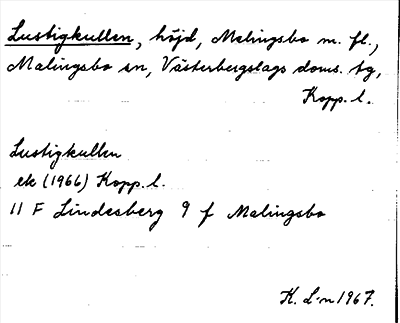 Lustigkullen, höjd, Malingsbo m. fl.,
Malingsbo sn, Västerbergslags doms. tg,
Kopp. l.
Lustigkullen
ek (1966) Kopp. l.
11 F Lindesberg 9 f Malingsbo
K. L-n 1967.